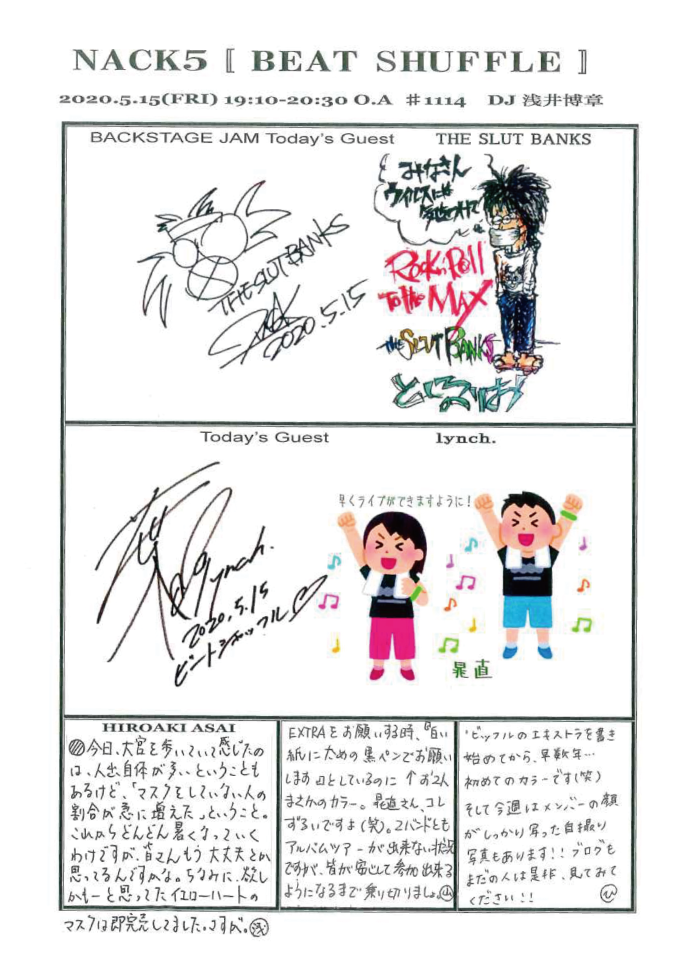 NACK5 〚 BEAT SHUFFLE 〛
2020.5.15(FRI) 19:10-20:30 O.A #1114 DJ 浅井博章
BACKSTAGE JAM Today's Guest THE SLUT BANKS
みなさん
ウイルスには
気をつけて
THE SLUT BANKS
2020.5.15
Rock'n'Roll
To the MAX
the SLUT BANKS
Today's Guest lynch.
早くライブができますように!
lynch.
2020.5.15
ビートシャッフル♡
晁直
HIROAKI ASAI
今日、大宮を歩いていて感じたの
は、人出自体が多いということも
あるけど、「マスクをしていない人の
割合が急に増えた」ということ。
これからどんどん暑くなっていく
わけですが、皆さんもう大丈夫とか
思ってるんですかな。ちなみに、欲し
かもーと思ってたイエローハートの
マスクは即完売してました。さすが。(浅)
EXTRAをお願いする時、『白い
紙に太めの黒ペンでお願い
します』としているのに ↑お2人
まさかのカラー。晁直さん、コレ
ずるいですよ(笑)。2バンドとも
アルバムツアーが出来ない状況
ですが、皆が安心して参加出来る
ようになるまで乗り切りましょ。(山)
ビッフルのエキストラを書き
始めてから、早数年…
初めてのカラーです(笑)
そして今週はメンバーの顔
がしっかり写った自撮り
写真もあります!! ブログも
まだの人は是非、見てみて
ください!! (ひ)